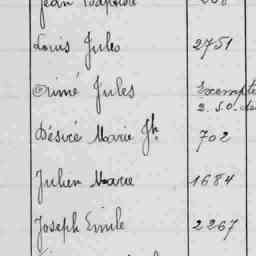 Jean Baptiste
Louis Jules 2751
Aimé Jules Exempté
2. S.O. de
Désiré Marie Jh 702
Julien Marie 1684
Joseph Emile 2267